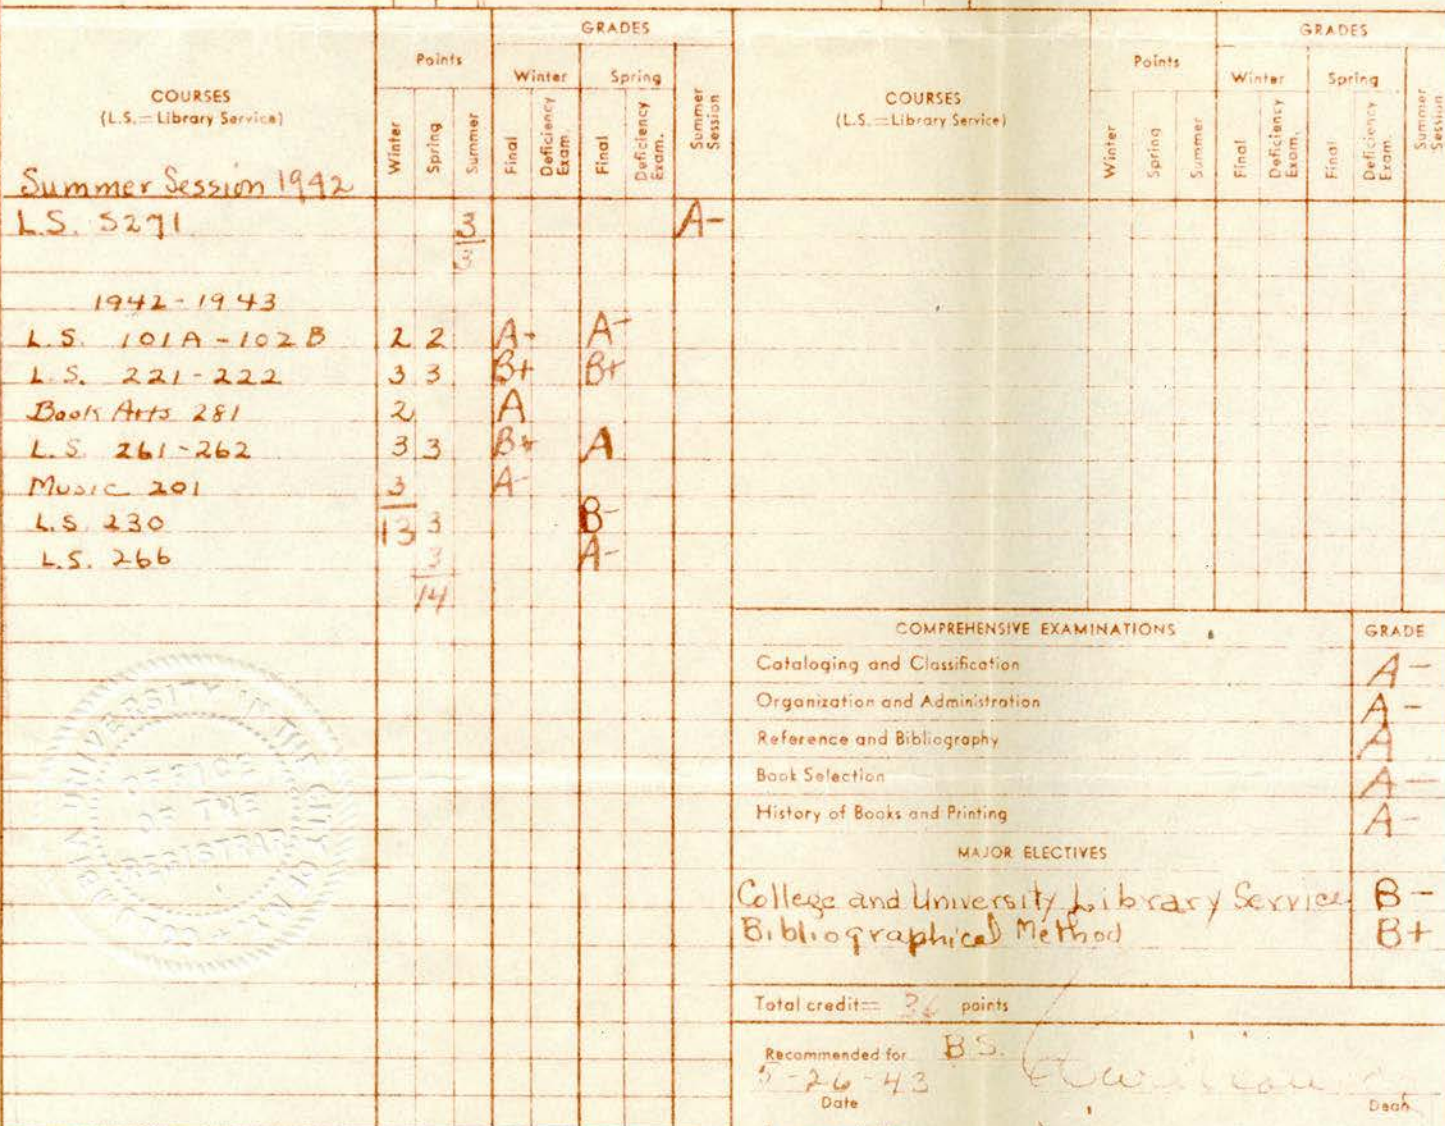 COURSES
(L.S.=Library Service)
Points
GRADES
Winter
Spring
Winter
Spring
Summer
Final
Deficiency Exam.
Final
Deficiency Exam.
Summer Session
Summer Session 1942
L.S. S271 3 A-
3
1942-1943
L.S. 101A-102B 2 2 A- A-
L.S. 221-222 3 3 B+ B+
Book Arts 281 2 A
L.S. 261-262 3 3 B+ A
Music 201 3 A-
L.S. 230 13 3 B-
L.S. 266 3 A-
14
COLUMBIA UNIVERSITY IN THE CITY OF N.Y.
OFFICE
OF THE
REGISTRAR
COURSES
(L.S.=Library Service)
Points
GRADES
Winter
Spring
Winter
Spring
Summer
Final
Deficiency Exam.
Final
Deficiency Exam.
Summer Session
COMPREHENSIVE EXAMINATIONS GRADE
Cataloging and Classification A-
Organization and Administration A-
Reference and Bibliography A
Book Selection A-
History of Books and Printing A-
MAJOR ELECTIVES
College and University Library Service B-
Bibliographical Method B+
Total credit= points
Recommended for B.S.
5-26-43
Date Dean